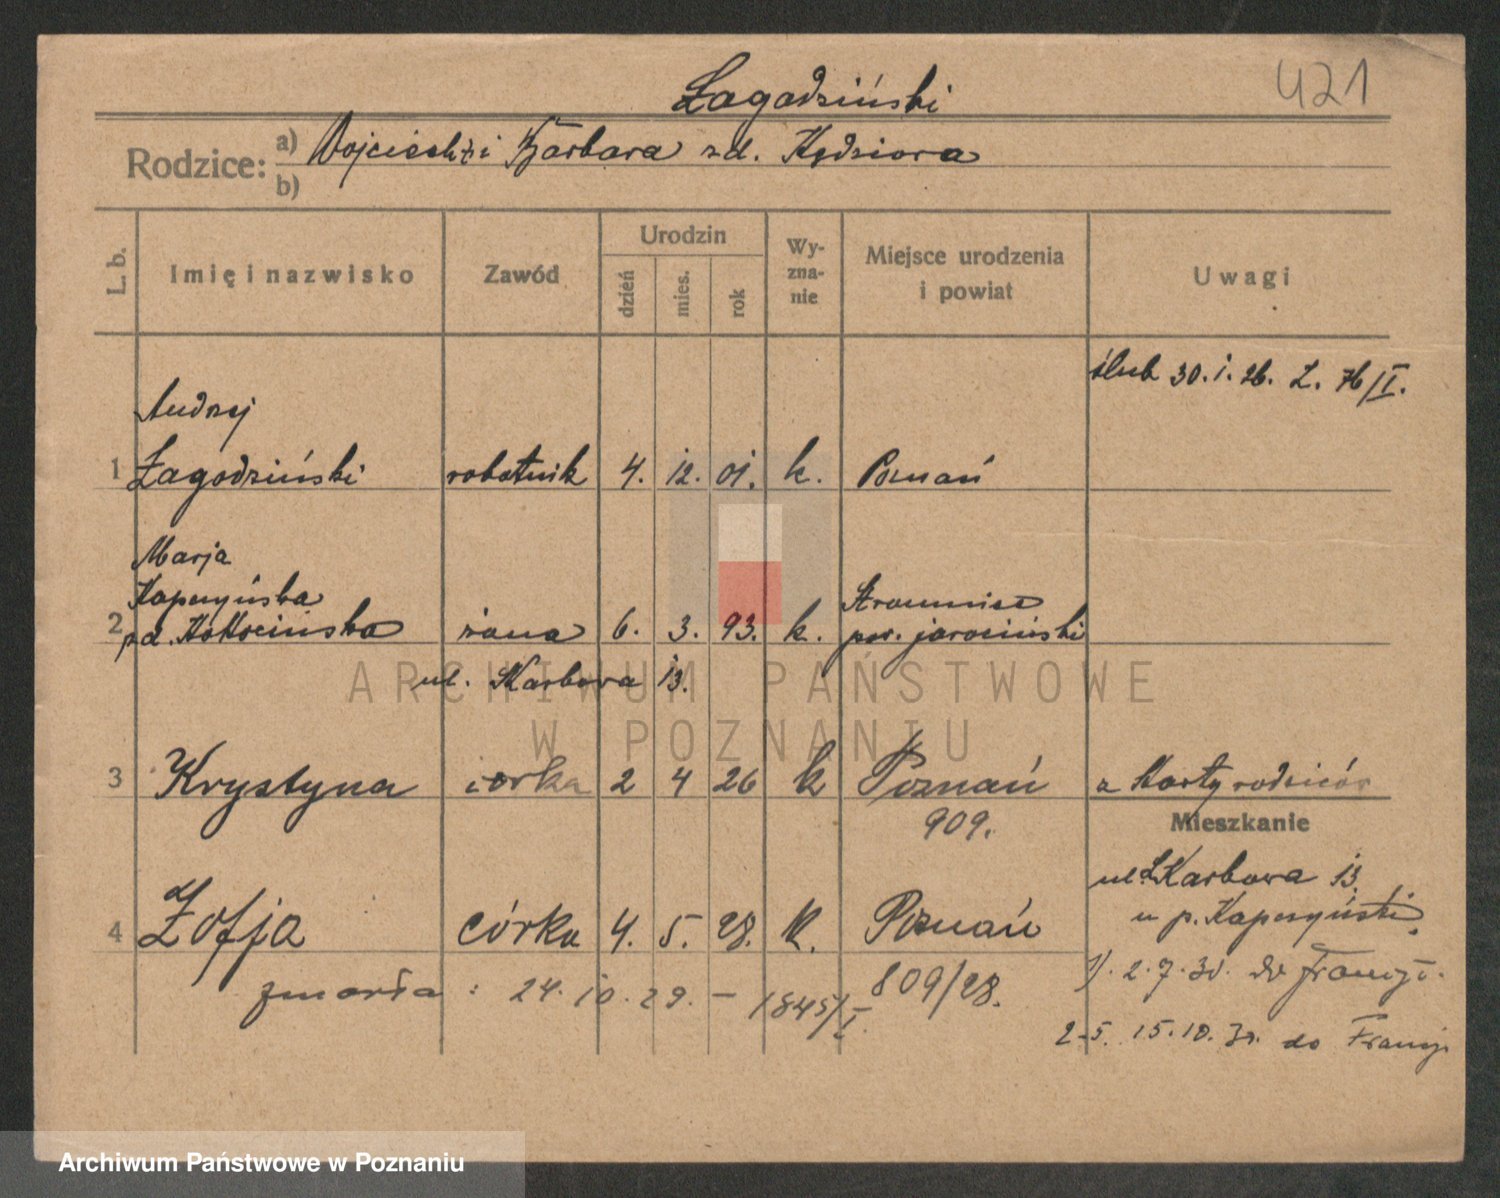 Łagodziński
421
Rodzice: a) Wojciech i Barbara zd. Kędziora
b)
L. b.
Imię i nazwisko
Zawód
Urodzin
dzień
mies.
rok
Wy-
zna-
nie
Miejsce urodzenia
i powiat
Uwagi
ślub 30. 1. 26. L. 76/I.
Andrzej
1 Łagodziński robotnik 4. 12. 01. k. Poznań
Marja
Kaperyńska
2 zd. Kokocińska żona 6. 3. 93. k.
pow. jarociński
ul. Karbowa 13.
3 Krystyna córka 2 4 26 k Poznań z Karty rodziców
909.
Mieszkanie
ul. Karbowa 13.
u p. Kaperyński
4 Zofja córka 4. 5. 28. k. Poznań
809/28.
zmarła : 24. 10. 29. – 1845/I.
1). 2. 7. 30. do Francji.
2-5. 15. 10. do Francji
ARCHIWUM PAŃSTWOWE
W POZNANIU
Archiwum Państwowe w Poznaniu